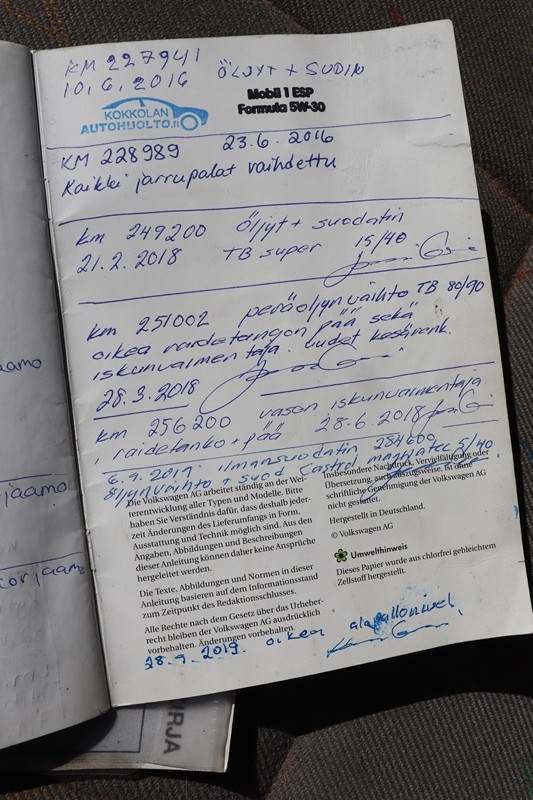 KM 227941
10.6.2016 ÖLJYT + SUDIN
Mobil 1 ESP
Formula 5W-30
KOKKOLAN
AUTOHUOLTO.fi
KM 228989 23.6.2016
Kaikki jarrupalat vaihdettu
km 249200 Öljyt + suodatin
21.2.2018 TB super 15/40
km 251002 peräöljynvaihto TB 80/90
oikea raidetangon pää sekä
iskunvaimentaja. uudet kesärenk.
28.3.2018
km 256200 vasen iskunvaimentaja
, raidetanko + pää 28.6.2018
6.9.2019. ilmansuodatin 284600
öljynvaihto + suod Castrol magnatec 5/40
Die Volkswagen AG arbeitet ständig an der Wei-
terentwicklung aller Typen und Modelle. Bitte
haben Sie Verständnis dafür, dass deshalb jeder-
zeit Änderungen des Lieferumfangs in Form,
Ausstattung und Technik möglich sind. Aus den
Angaben, Abbildungen und Beschreibungen
dieser Anleitung können daher keine Ansprüche
hergeleitet werden.
Die Texte, Abbildungen und Normen in dieser
Anleitung basieren auf dem Informationsstand
zum Zeitpunkt des Redaktionsschlusses.
Alle Rechte nach dem Gesetz über das Urheber-
recht bleiben der Volkswagen AG ausdrücklich
vorbehalten. Änderungen vorbehalten.
Insbesondere Nachdruck, Vervielfältigung oder
Übersetzung, auch auszugsweise, ist ohne
schriftliche Genehmigung der Volkswagen AG
nicht gestattet.
Hergestellt in Deutschland.
© Volkswagen AG
Umwelthinweis
Dieses Papier wurde aus chlorfrei gebleichtem
Zellstoff hergestellt.
28.9.2019. oikea alapallonivel
aamo
jaamo
corjaamo
IRJA